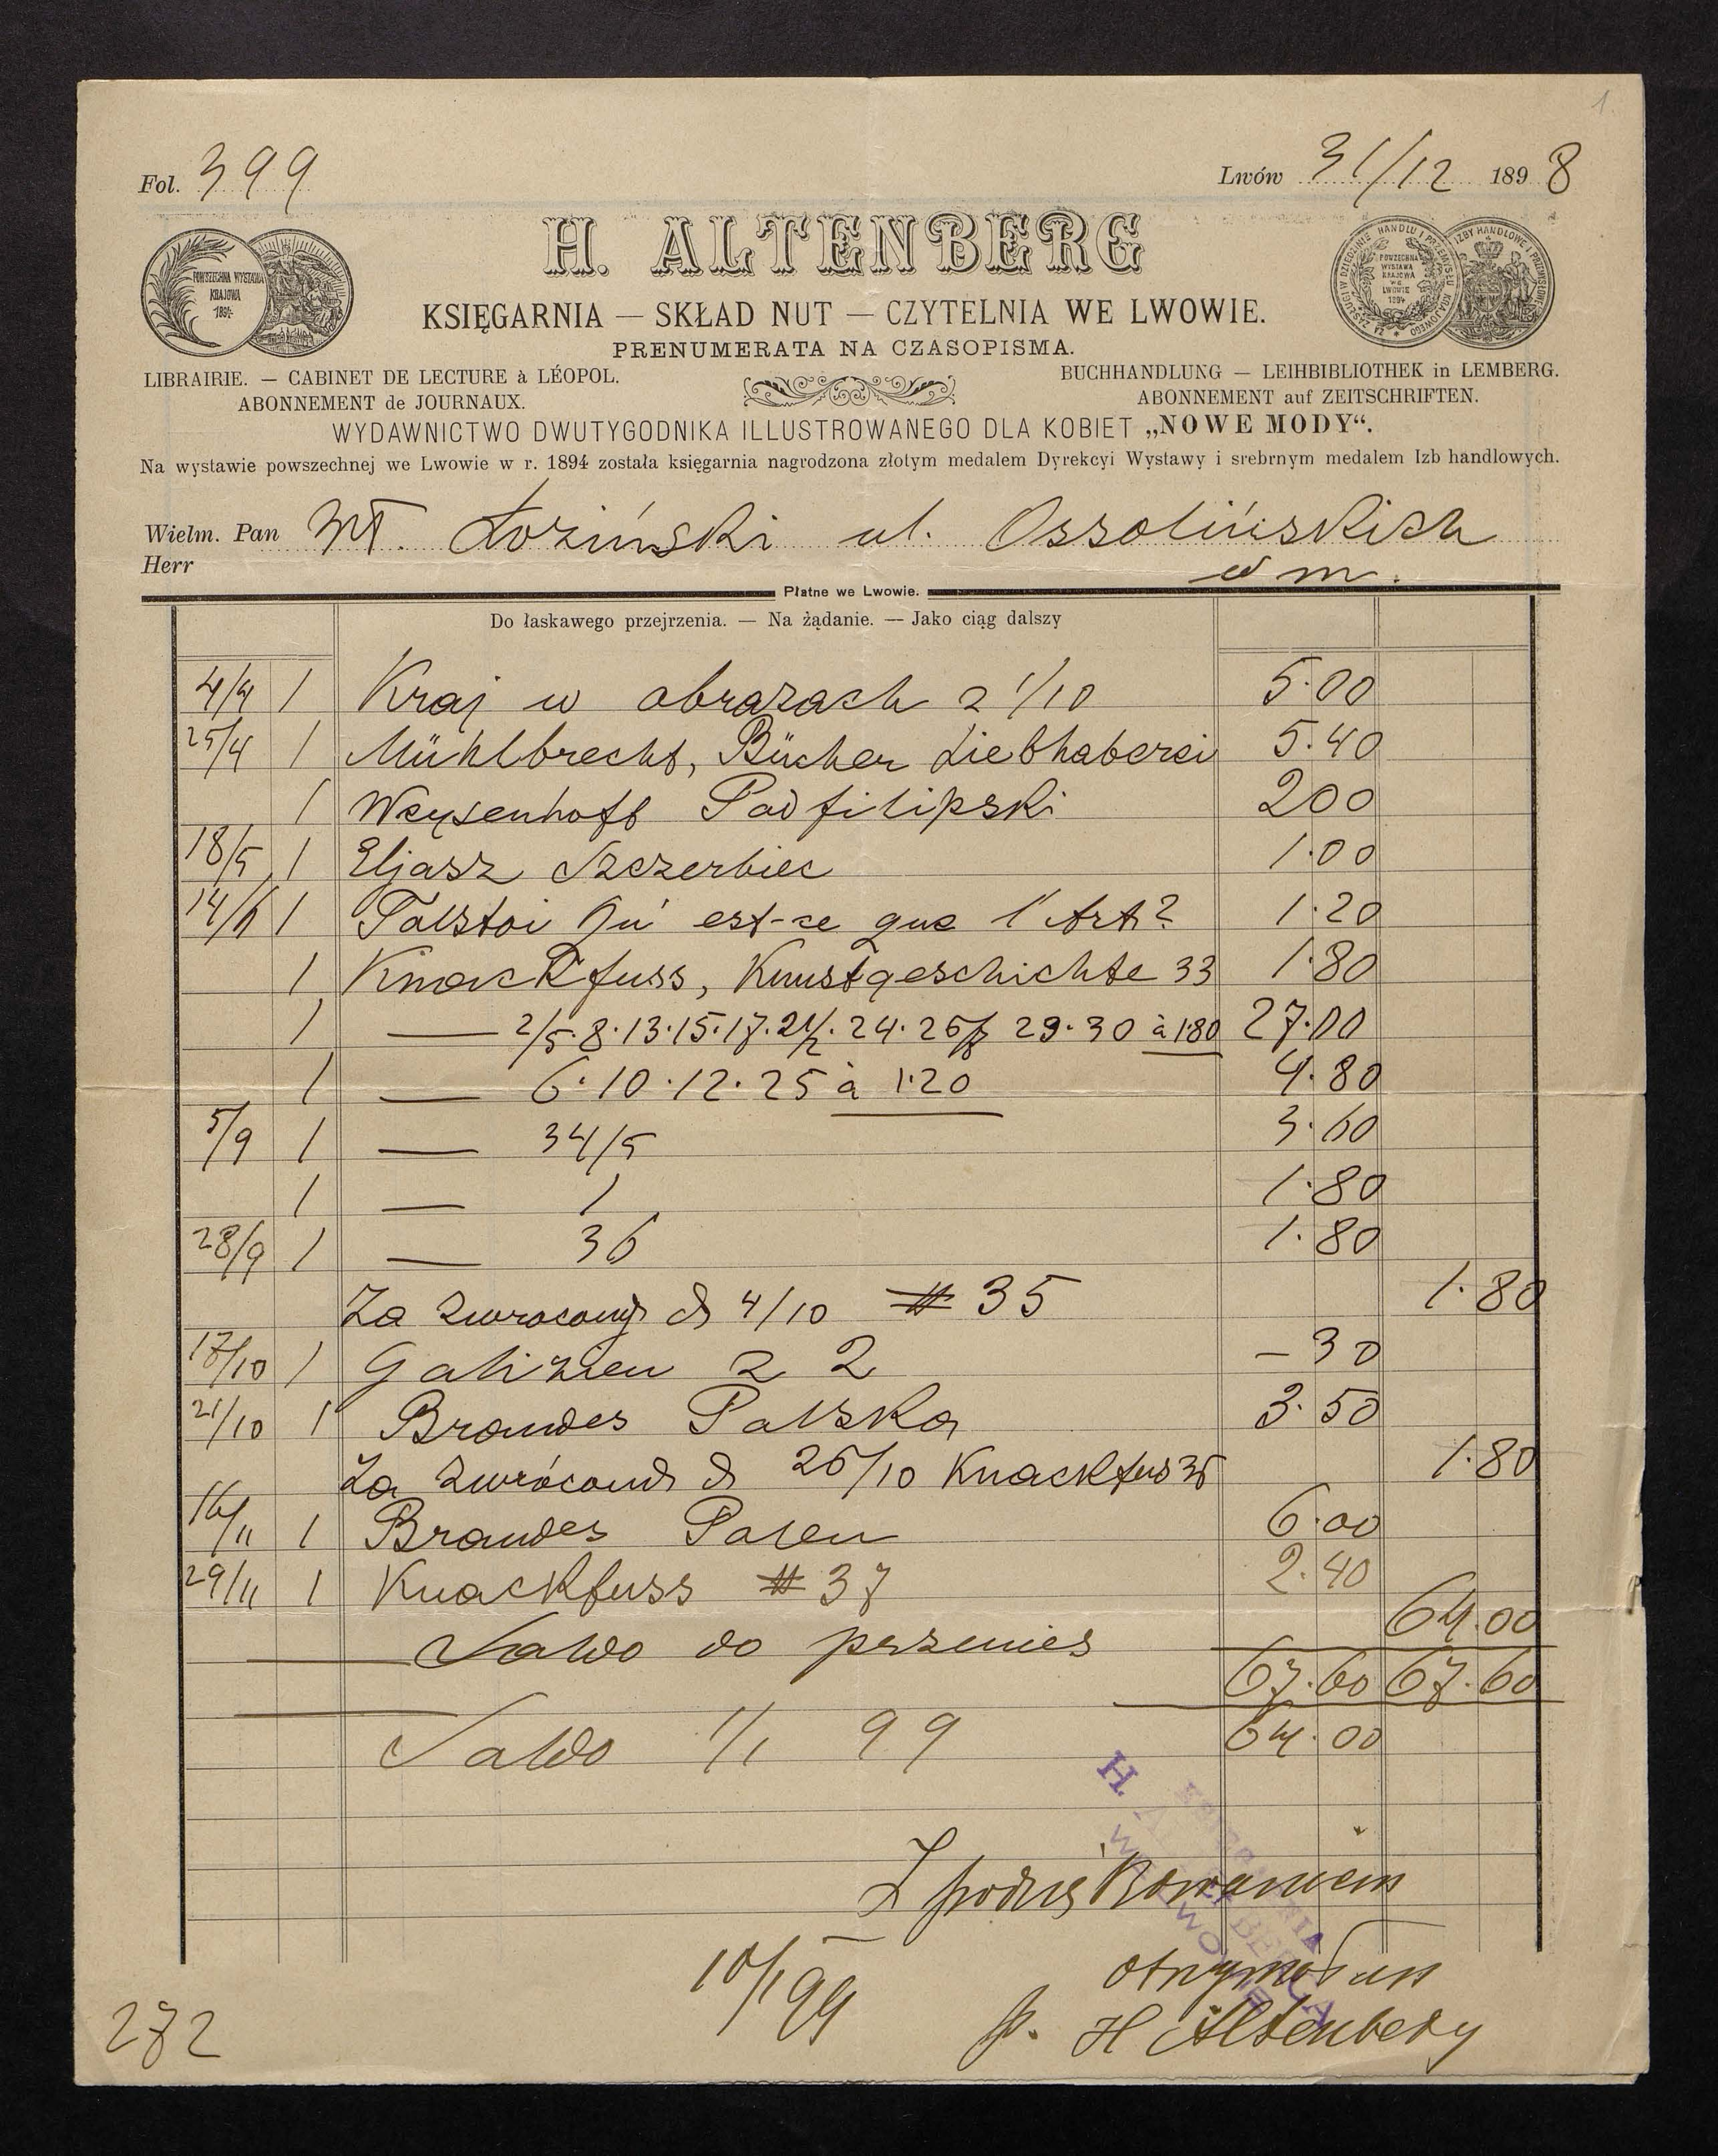 1.
Fol. 399
Lwów 31/12 1898
H. ALTENBERG
KSIĘGARNIA — SKŁAD NUT — CZYTELNIA WE LWOWIE.
PRENUMERATA NA CZASOPISMA.
LIBRAIRIE. — CABINET DE LECTURE à LÉOPOL.
ABONNEMENT de JOURNAUX.
BUCHHANDLUNG — LEIHBIBLIOTHEK in LEMBERG.
ABONNEMENT auf ZEITSCHRIFTEN.
WYDAWNICTWO DWUTYGODNIKA ILLUSTROWANEGO DLA KOBIET „NOWE MODY“.
Na wystawie powszechnej we Lwowie w r. 1894 została księgarnia nagrodzona złotym medalem Dyrekcyi Wystawy i srebrnym medalem Izb handlowych.
POWSZECHNA WYSTAWA
KRAJOWA
1894
POWSZECHNA
WYSTAWA
KRAJOWA
WE
LWOWIE
1894
Wielm. Pan Wł. Łoziński ul. Ossolińskich
Herr
w m.
Płatne we Lwowie.
Do łaskawego przejrzenia. — Na żądanie. — Jako ciąg dalszy
4/4 1 Kraj w obrazach z 1/10 5.00
25/4 1 Mühlbrecht, Bücher Liebhaberei 5.40
1 Weysenhoff Podfilipski 200
18/5 1 Eljasz Szczerbiec 1.00
14/6 1 Tolstoi Qu' est-ce que l'Art? 1.20
1 Knackfuss, Kunstgeschichte 33 1.80
1 — 2/5.8.13.15.17.21/2.24.26/8 29.30 à 1.80 27.00
1 — 6.10.12.25 à 1.20 4.80
5/9 1 — 34/5 3.60
1 — 1 1.80
28/9 1 — 36 1.80
Za zwrócony d 4/10 # 35 1.80
17/10 1 Galizien z 2 – 30
21/10 1 Brandes Polska 3.50
Za zwrócony d 26/10 Knackfus 36 1.80
16/11 1 Brandes Polen 6.00
29/11 1 Knackfuss # 37 2.40
Saldo do przenies 64.00
67.60 67.60
Saldo 1/1 99 64.00
H.
Z podziękowaniem
otrzymałem
10/1 99
p. H Altenberg
272